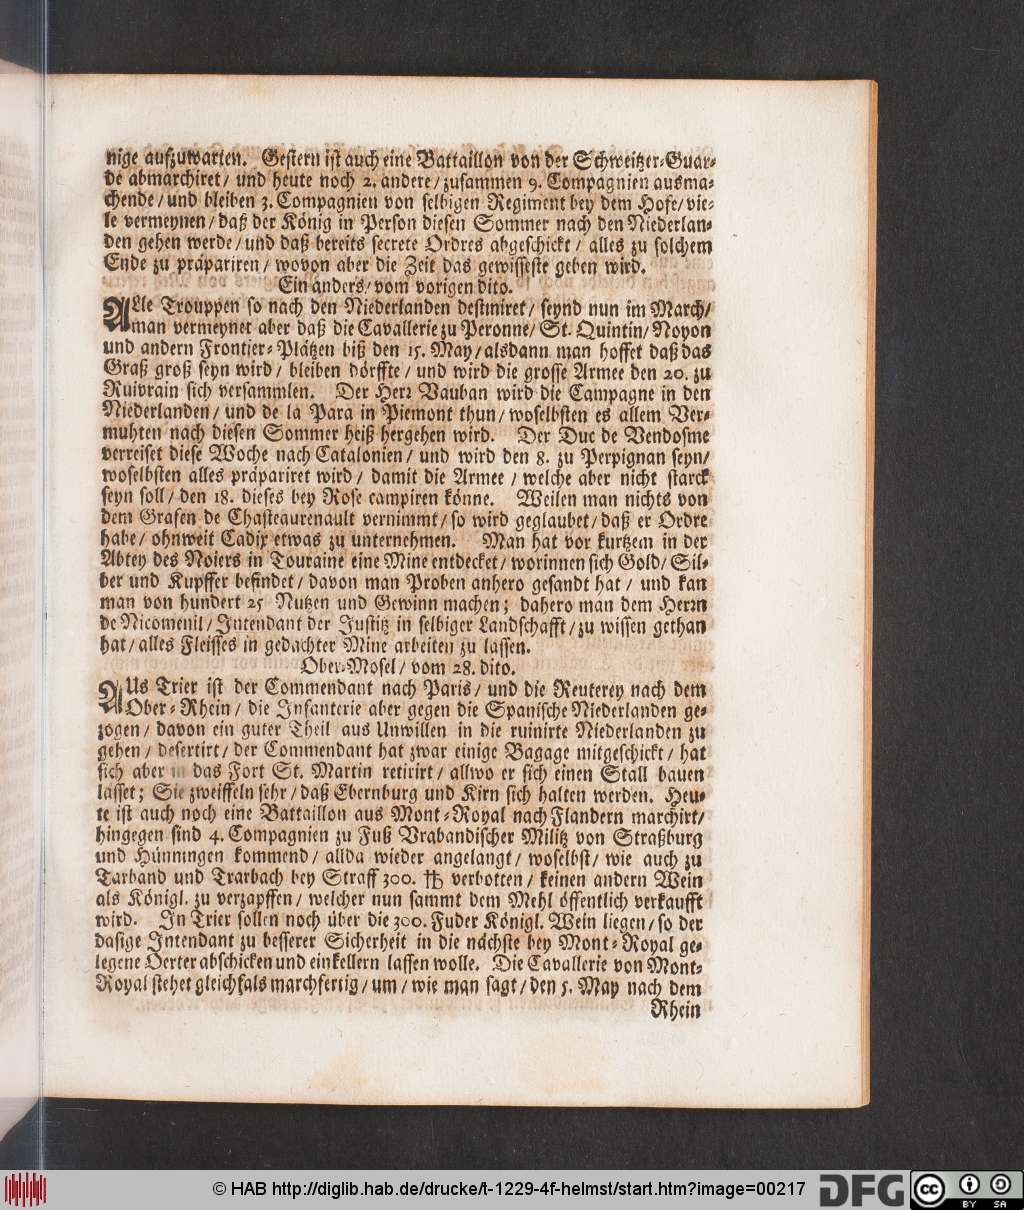 nige aufzuwarten. Gestern ist auch eine Battaillon von der Schweitzer-Guar-
de abmarchiret / und heute noch 2. andere / zusammen 9. Compagnien ausma-
chende / und bleiben 3. Compagnien von selbigen Regiment bey dem Hofe / vie-
le vermeynen / daß der König in Person diesen Sommer nach den Niederlan-
den gehen werde / und daß bereits secrete Ordres abgeschickt / alles zu solchem
Ende zu präpariren / wovon aber die Zeit das gewisseste geben wird.
Ein anders / vom vorigen dito.
ALle Trouppen so nach den Niederlanden destiniret / seynd nun im March /
man vermeynet aber daß die Cavallerie zu Peronne / St. Quintin / Noyon
und andern Frontier-Plätzen biß den 15. May / alsdann man hoffet daß das
Graß groß seyn wird / bleiben dörffte / und wird die grosse Armee den 20. zu
Ruivrain sich versammlen. Der Herr Vauban wird die Campagne in den
Niederlanden / und de la Para in Piemont thun / woselbsten es allem Ver-
muhten nach diesen Sommer heiß hergehen wird. Der Duc de Vendosme
verreiset diese Woche nach Catalonien / und wird den 8. zu Perpignan seyn /
woselbsten alles präpariret wird / damit die Armee / welche aber nicht starck
seyn soll / den 18. dieses bey Rose campiren könne. Weilen man nichts von
dem Grafen de Chasteaurenault vernimmt / so wird geglaubet / daß er Ordre
habe / ohnweit Cadix etwas zu unternehmen. Man hat vor kurtzem in der
Abtey des Noiers in Touraine eine Mine entdecket / worinnen sich Gold / Sil-
ber und Kupffer befindet / davon man Proben anhero gesandt hat / und kan
man von hundert 25 Nutzen und Gewinn machen; dahero man dem Herrn
de Nicomenil / Intendant der Justitz in selbiger Landschafft / zu wissen gethan
hat / alles Fleisses in gedachter Mine arbeiten zu lassen.
Ober-Mosel / vom 28. dito.
AUs Trier ist der Commendant nach Paris / und die Reuterey nach dem
Ober-Rhein / die Infanterie aber gegen die Spanische Niederlanden ge-
zogen / davon ein guter Theil aus Unwillen in die ruinirte Niederlanden zu
gehen / desertirt / der Commendant hat zwar einige Bagage mitgeschickt / hat
sich aber in das Fort St. Martin retirirt / allwo er sich einen Stall bauen
lasset; Sie zweiffeln sehr / daß Ebernburg und Kirn sich halten werden. Heu-
te ist auch noch eine Battaillon aus Mont-Royal nach Flandern marchirt /
hingegen sind 4. Compagnien zu Fuß Vrabandischer Militz von Straßburg
und Hünningen kommend / allda wieder angelangt / woselbst / wie auch zu
Tarband und Trarbach bey Straff 300. verbotten / keinen andern Wein
als Königl. zu verzapffen / welcher nun sammt dem Mehl öffentlich verkaufft
wird. In Trier sollen noch über die 300. Fuder Königl. Wein liegen / so der
dasige Intendant zu besserer Sicherheit in die nächste bey Mont-Royal ge-
legene Oerter abschicken und einkellern lassen wolle. Die Cavallerie von Mont-
Royal stehet gleichfals marchfertig / um / wie man sagt / den 5. May nach dem
Rhein
© HAB http://diglib.hab.de/drucke/t-1229-4f-helmst/start.htm?image=00217
DFG
cc BY SA